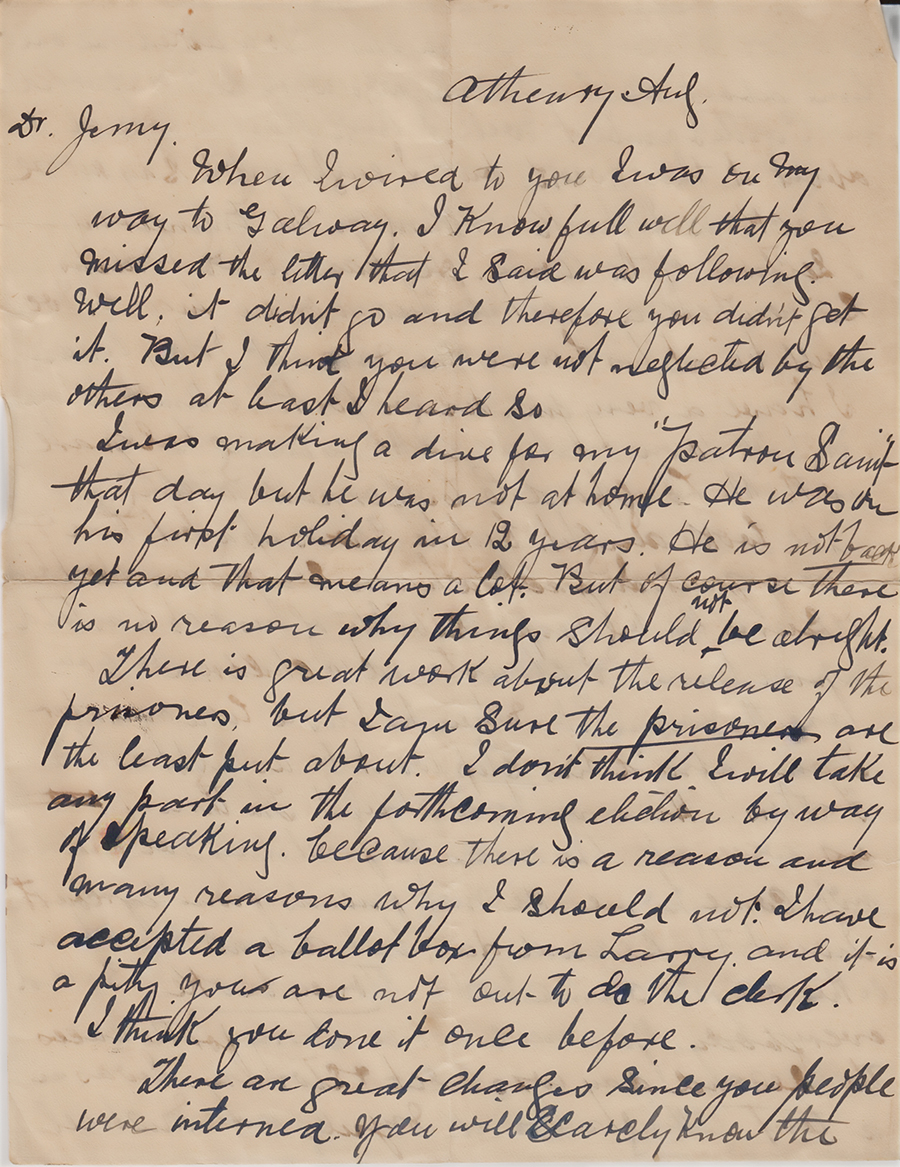 Athenry Aug.
Dr. Jemmy.
When I wired to you I was on my
way to Galway. I Know full well that you
missed the letter that I said was following.
Well, it didn't go and therefore you didn't get
it. But I think you were not neglected by the
others at least I heard so
I was making a dive for my "patron Saint"
that day but he was not at home. He was on
his first holiday in 12 years. He is not back
yet and that means a lot. But of course there
is no reason why things should not be alright.
There is great work about the release of the
prisones, but I am sure the prisoners are
the least put about. I don't think I will take
any part in the forthcoming election by way
of speaking. because there is a reason and
many reasons why I should not. I have
accepted a ballot box from Larry and it is
a pitty you are not out to do the clerk.
I think you done it once before.
There are great changes since you people
were interned. You will Scarcely Know the